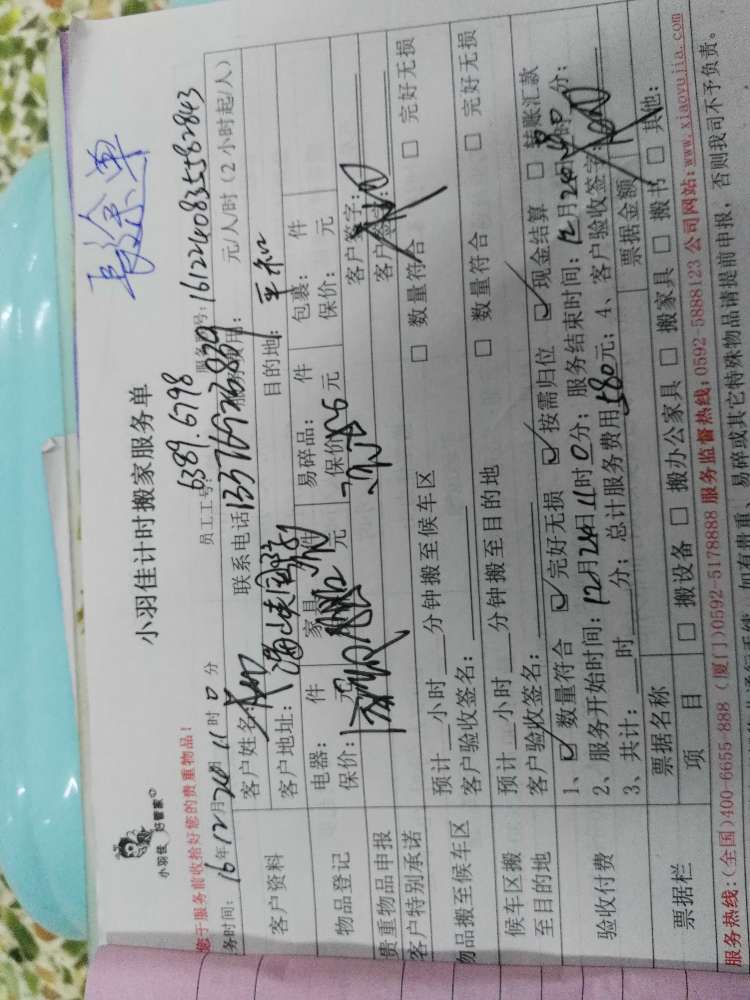 长途单
小羽佳计时搬家服务单
小羽佳 好管家
您于服务前收拾好您的贵重物品!
员工工号: 6389.6798
务时间: 16年12月24日11时0分
号: 1612240835582843
元/人/时(2小时起/人)
客户资料
客户姓名
联系电话 13376923839
客户地址:
目的地: 平和
物品登记
电器: 件 家具 件 易碎品: 件 包裹: 件
保价: 元 元 保价 元 保价: 元
贵重物品申报
客户签字:
客户特别承诺
客户 字:
物品搬至候车区
预计__小时__分钟搬至候车区 □ 数量符合 □ 完好无损
客户验收签名:
候车区搬至目的地
预计__小时__分钟搬至目的地 □ 数量符合 □ 完好无损
客户验收签名:
验收付费
1、☑ 数量符合 ☑ 完好无损 ☑ 按需归位 ☑ 现金结算 □ 转账汇款
2、服务开始时间: 12月24日11时0分; 服务结束时间: 12月24日 时 分;
3、共计: __时__分; 总计服务费用580元; 4、客户验收签字
票据栏
票据名称
票据金额
项目
□ 搬设备 □ 搬办公家具 □ 搬家具 □ 搬书 □ 其他:
服务热线:(全国)400-6655-888 (厦门)0592-5178888 服务监督热线:0592-5888123 公司网站:www.xiaoyujia.com
如有贵重、易碎或其它特殊物品请提前申报, 否则我司不予负责。